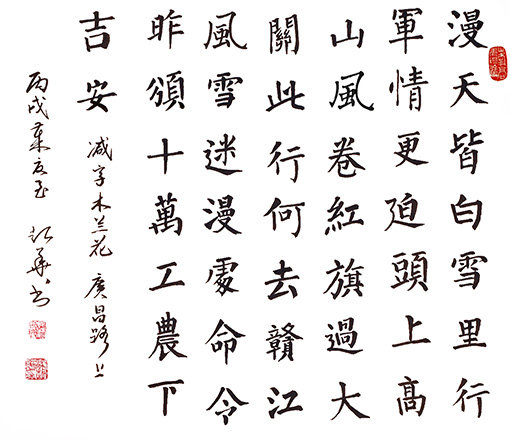 漫天皆白雪里行
軍情更迫頭上高
山風卷紅旗過大
關此行何去贛江
風雪迷漫處命令
昨頒十萬工農下
吉安 减字木兰花 廣昌路上
丙戌 華书